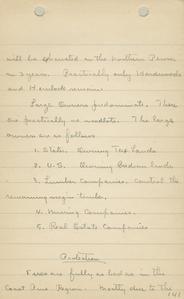 will be exhausted in the Northern Penin.
in 3 years. Practically only Hardwoods
and Hemlock remain
Large Owners predominate. There
are practically no woodlots. The large
owners are as follows
1. State. Owning Tax Lands
2. U.S. Owning lands
3. Lumber Companies. Control the
remaining virgin timber.
4. Mining Companies.
5. Real Estate Companies
Protection
Fires are fully as bad as in the
Coast Region. Mostly due to the